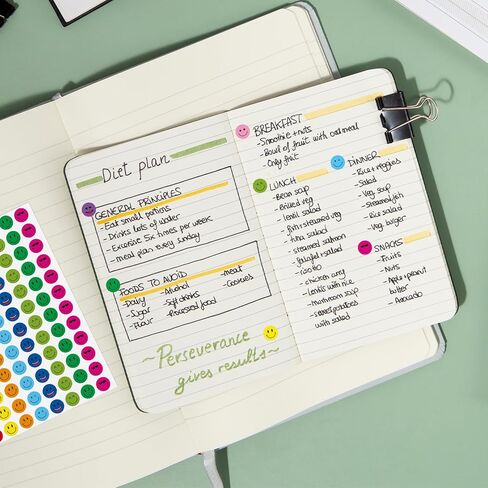 Diet plan
GENERAL PRINCIPLES
- Eat small portions
- Drinks lots of water
- Excersise 5x times per week
- meal plan every sunday
FOODS TO AVOID
- Dairy - Alcohol - meat
- Sugar - Soft drinks - Cookies
- Flour - Processed food
~Perseverance
gives results~
BREAKFAST
- Smoothie + nuts
- Bowl of fruit with oatmeal
- Only fruit
LUNCH
- Bean soup
- Boiled veg
- lentil salad
- fish + steamed veg
- tuna salad
- steamed salmon
- falafel + salad
- risotto
- chicken curry
- lentils with rice
- mushroom soup
- sweet potatoes
with salad
DINNER
- Rice + veggies
- Salad
- Veg. soup
- Steamed fish
- Rice salad
- Veg. burger
SNACKS
- Fruits
- Nuts
- Apple + peanut
butter
- Avocado